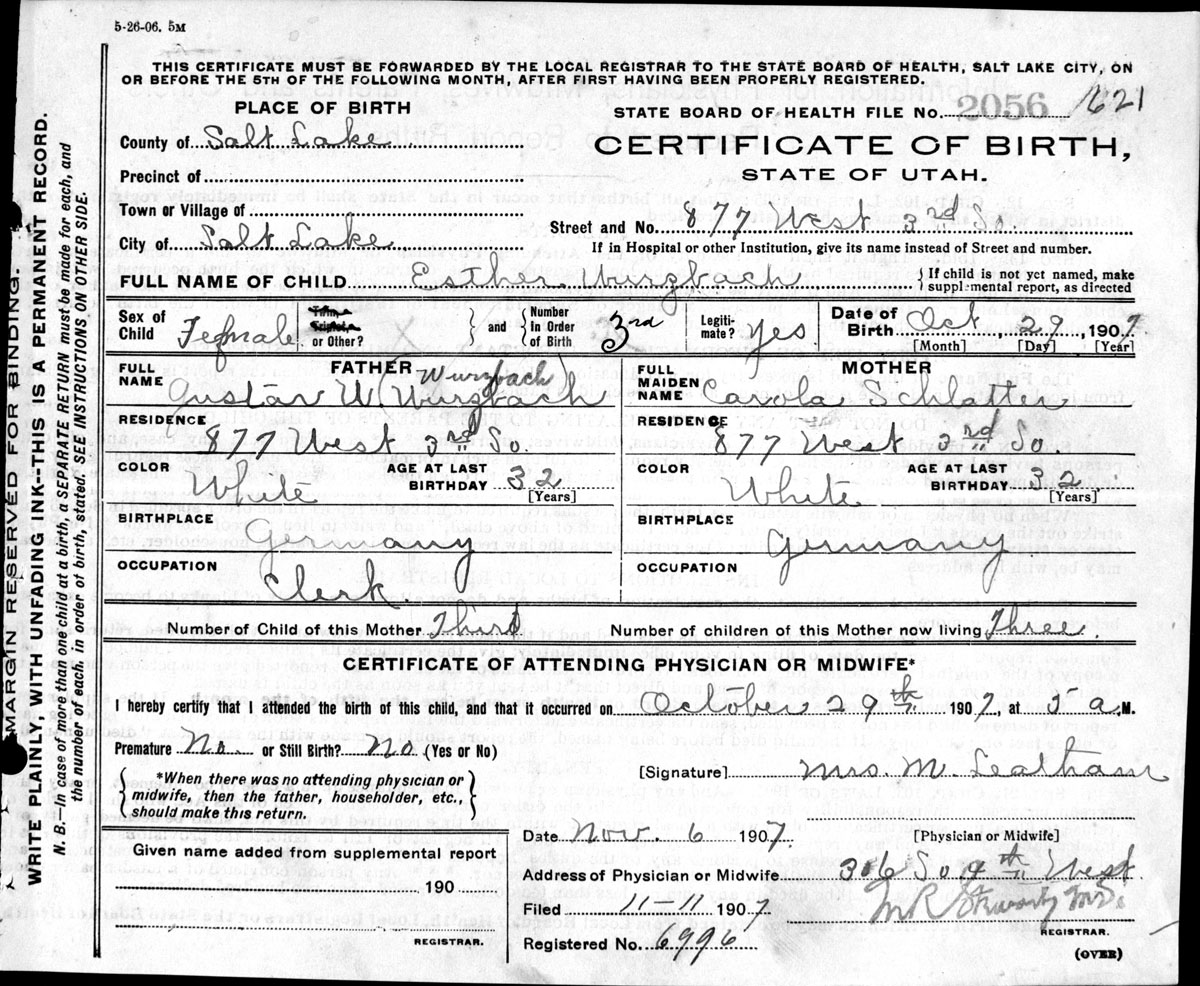 5-26-06. 5M
THIS CERTIFICATE MUST BE FORWARDED BY THE LOCAL REGISTRAR TO THE STATE BOARD OF HEALTH, SALT LAKE CITY, ON
OR BEFORE THE 5TH OF THE FOLLOWING MONTH, AFTER FIRST HAVING BEEN PROPERLY REGISTERED.
MARGIN RESERVED FOR BINDING.
WRITE PLAINLY, WITH UNFADING INK--THIS IS A PERMANENT RECORD.
N. B.—In case of more than one child at a birth, a SEPARATE RETURN must be made for each, and
the number of each, in order of birth, stated. SEE INSTRUCTIONS ON OTHER SIDE.
PLACE OF BIRTH
County of Salt Lake
Precinct of
Town or Village of
City of Salt Lake
STATE BOARD OF HEALTH FILE No. 2056 621
CERTIFICATE OF BIRTH,
STATE OF UTAH.
Street and No. 877 West 3rd So.
If in Hospital or other Institution, give its name instead of Street and number.
FULL NAME OF CHILD Esther Wurzbach { If child is not yet named, make
supplemental report, as directed
Sex of Child Female Twin, Triplet, or Other? } and { Number In Order of Birth 3rd Legiti-mate? Yes Date of Birth Oct 29 1907
[Month] [Day] [Year]
FATHER
Wurzbach
FULL NAME Gustav W Wurzbach
RESIDENCE 877 West 3rd So.
COLOR White AGE AT LAST BIRTHDAY 32
[Years]
BIRTHPLACE Germany
OCCUPATION Clerk.
MOTHER
FULL MAIDEN NAME Carola Schlatter
RESIDENCE 877 West 3rd So.
COLOR White AGE AT LAST BIRTHDAY 32
[Years]
BIRTHPLACE Germany
OCCUPATION
Number of Child of this Mother Third Number of children of this Mother now living Three.
CERTIFICATE OF ATTENDING PHYSICIAN OR MIDWIFE*
I hereby certify that I attended the birth of this child, and that it occurred on October 29th 1907, at 5 a M.
Premature No. or Still Birth? No (Yes or No)
{ *When there was no attending physician or
midwife, then the father, householder, etc.,
should make this return. }
[Signature] Mrs. M. Leatham
[Physician or Midwife]
Given name added from supplemental report
190
REGISTRAR.
Date Nov. 6 1907.
Address of Physician or Midwife 306 So 9th West
Filed 11-11 1907
Registered No. 6996
REGISTRAR.
(OVER)